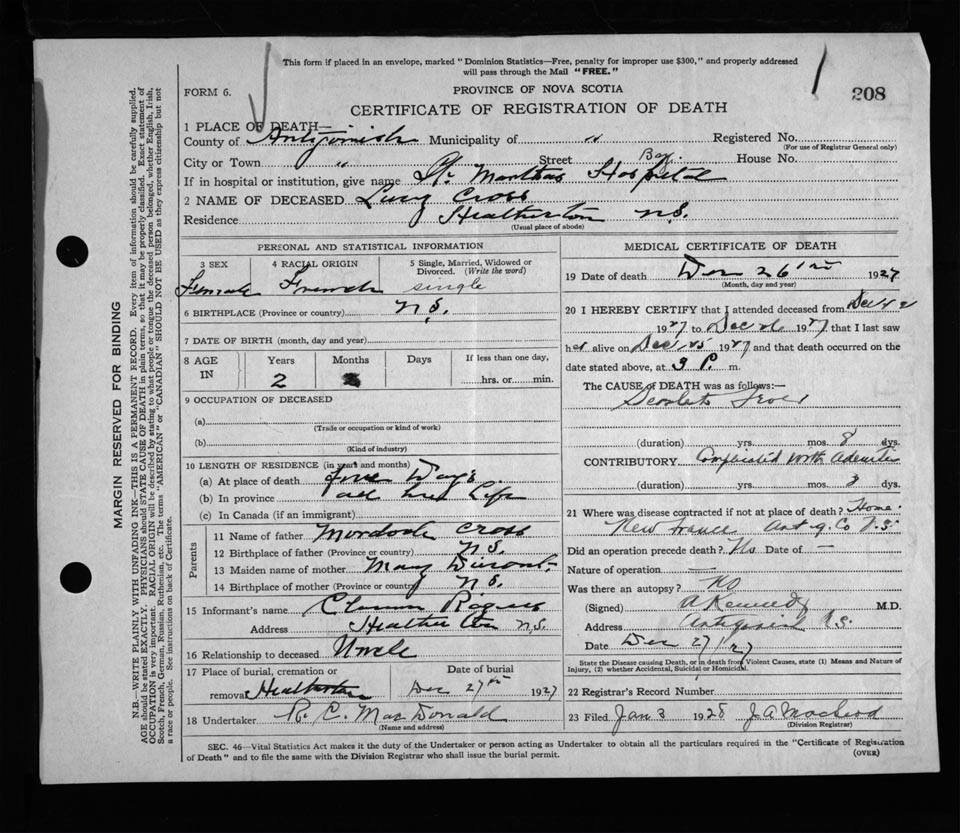 This form if placed in an envelope, marked "Dominion Statistics—Free, penalty for improper use $300," and properly addressed
will pass through the Mail "FREE."
FORM 6.
PROVINCE OF NOVA SCOTIA
208
CERTIFICATE OF REGISTRATION OF DEATH
1 PLACE OF DEATH—
County of Antigonish Municipality of " Registered No.
(For use of Registrar General only)
City or Town " Street House No.
If in hospital or institution, give name St. Marthas Hospital
2 NAME OF DECEASED Lucy Cross
Residence Heatherton N.S.
(Usual place of abode)
PERSONAL AND STATISTICAL INFORMATION
3 SEX 4 RACIAL ORIGIN 5 Single, Married, Widowed or
Divorced. (Write the word)
Female French single
6 BIRTHPLACE (Province or country) N.S.
7 DATE OF BIRTH (month, day and year)
8 AGE IN Years Months Days If less than one day,
2 hrs. or min.
9 OCCUPATION OF DECEASED
(a)
(Trade or occupation or kind of work)
(b)
(Kind of industry)
10 LENGTH OF RESIDENCE (in years and months)
(a) At place of death Days
(b) In province all Life
(c) In Canada (if an immigrant)
Parents
11 Name of father Cross
12 Birthplace of father (Province or country) N.S.
13 Maiden name of mother Mary
14 Birthplace of mother (Province or country) N.S.
15 Informant's name Rogers
Address Heatherton N.S.
16 Relationship to deceased Uncle
17 Place of burial, cremation or Date of burial
removal Heatherton Dec 27th 1927
18 Undertaker R. C. MacDonald
(Name and address)
MEDICAL CERTIFICATE OF DEATH
19 Date of death Dec 26 1927
(Month, day and year)
20 I HEREBY CERTIFY that I attended deceased from Dec
1927 to Dec 26 1927 that I last saw
her alive on Dec 25 1927 and that death occurred on the
date stated above, at P. m.
The CAUSE of DEATH was as follows:—
Scarlet Fever
(duration) yrs. mos. 8 dys.
CONTRIBUTORY Complicated with
(duration) yrs. mos. 3 dys.
21 Where was disease contracted if not at place of death? Home
New France Antig. Co N.S.
Did an operation precede death? No Date of —
Nature of operation —
Was there an autopsy? No
(Signed) A Kennedy M.D.
Address Antigonish N.S.
Date Dec 27/27
State the Disease causing Death, or in death from Violent Causes, state (1) Means and Nature of
Injury, (2) whether Accidental, Suicidal or Homicidal.
22 Registrar's Record Number
23 Filed Jan 3 1928 J. A. Macleod
(Division Registrar)
SEC. 46—Vital Statistics Act makes it the duty of the Undertaker or person acting as Undertaker to obtain all the particulars required in the "Certificate of Registration
of Death" and to file the same with the Division Registrar who shall issue the burial permit.
(OVER)
MARGIN RESERVED FOR BINDING
N.B.—WRITE PLAINLY WITH UNFADING INK—THIS IS A PERMANENT RECORD. Every item of information should be carefully supplied.
AGE should be stated EXACTLY. PHYSICIANS should STATE CAUSE OF DEATH in plain terms, so that it may be properly classified. Exact statement of
OCCUPATION is very important. RACIAL ORIGIN will be described by stating to what people or tongue the deceased person belonged, whether English, Irish,
Scotch, French, German, Russian, Ruthenian, etc. The terms "AMERICAN" or "CANADIAN" SHOULD NOT BE USED as they express citizenship but not
a race or people. See instructions on back of Certificate.